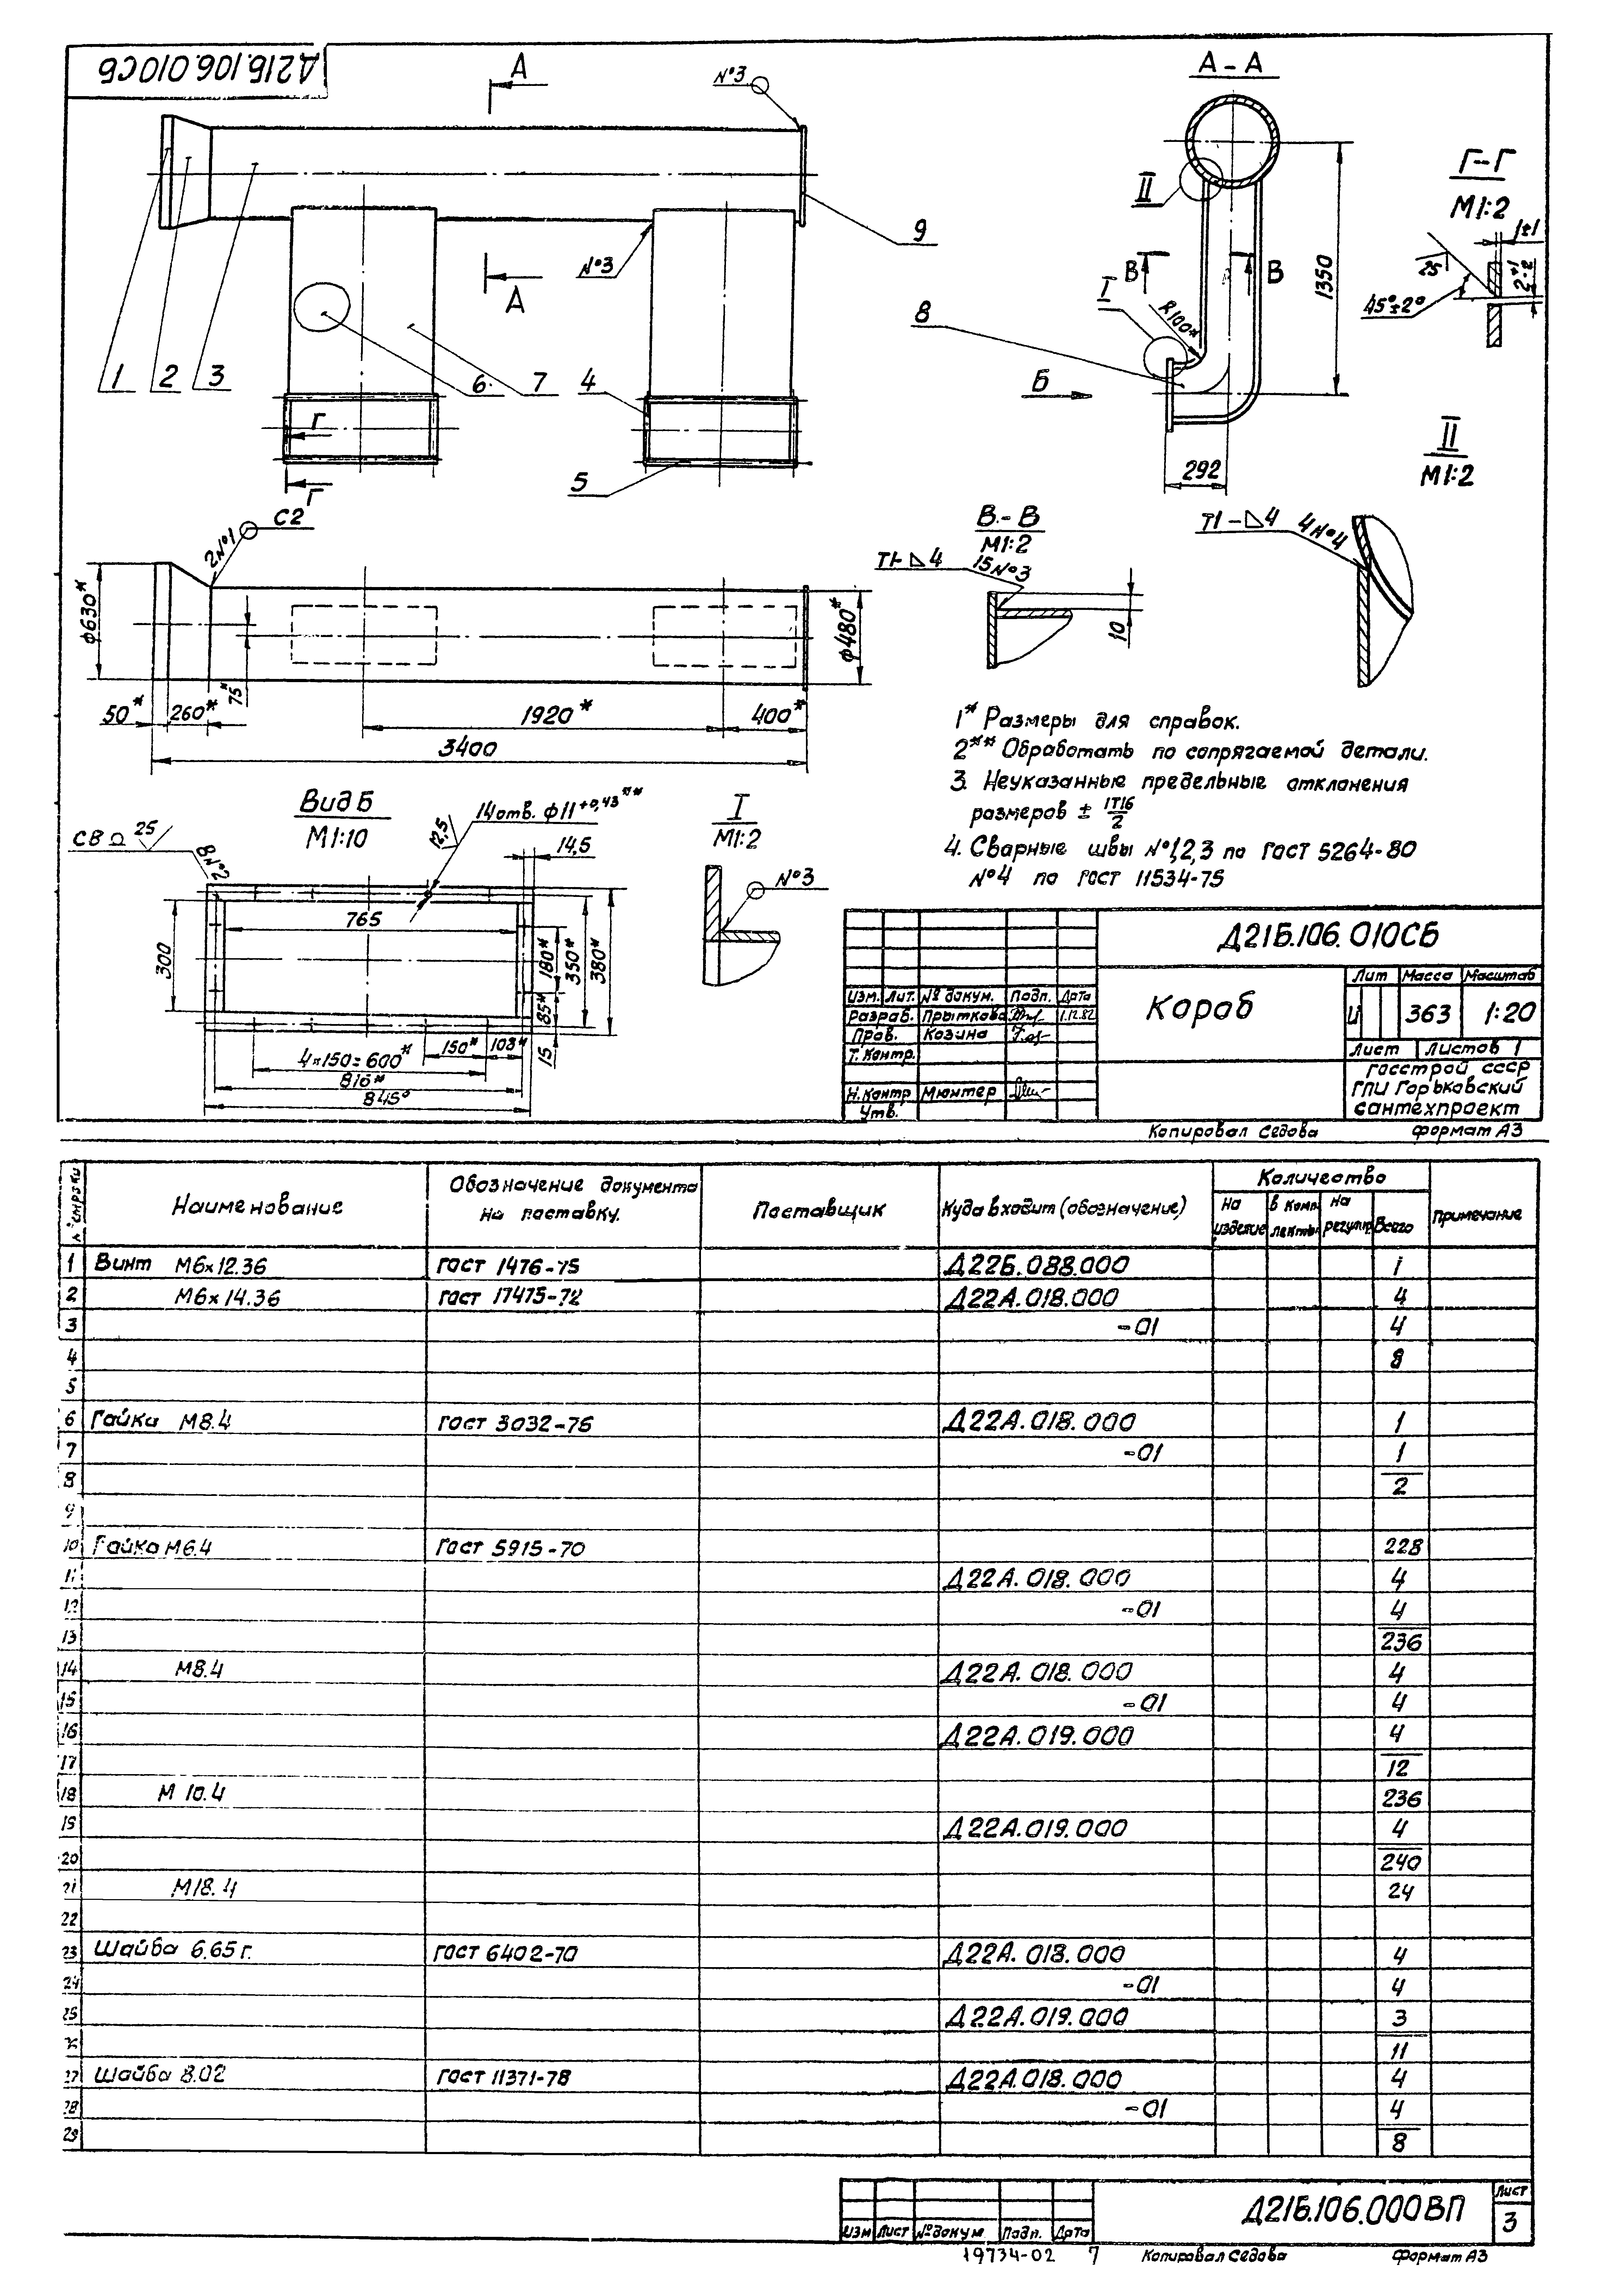 Д21Б.106.010СБ
А
№3
А - А
II
Г-Г
М1:2
1±1
25
45°±2°
9
№3
А
В
В
I
R100*
1350
8
1
2
3
6
7
4
Б
292
II
М1:2
Г
5
Г
С2
2№1
В-В
М1:2
Т1-◺4
15№3
10
Т1-◺4
4№4
ϕ630*
75*
ϕ480*
50*
260*
1920*
400*
3400
1* Размеры для справок.
2** Обработать по сопрягаемой детали.
3. Неуказанные предельные отклонения
размеров ± IT16/2
4. Сварные швы №1,2,3 по ГОСТ 5264-80
№4 по ГОСТ 11534-75
Вид Б
М1:10
14 отв. ϕ11+0,43**
12,5
С8 Ω 25
8№2
14,5
I
М1:2
№3
765
300
180*
350*
380*
85*
15
4×150=600*
150*
108*
816*
845*
Д21Б.106.010СБ
Короб
Лит Масса Масштаб
И 363 1:20
Лист Листов 1
Изм. Лит. № докум. Подп. Дата
Разраб. Прыткова 1.12.82
Пров. Козина
Т. Контр.
Н. Контр Мюнтер
Утв.
Госстрой СССР
ГПИ Горьковский
сантехпроект
Копировал Седова Формат А3
№ строки Наименование Обозначение документа на поставку. Поставщик Куда входит (обозначение) Количество Примечание
На изделие В комплекты На регулир. Всего
1 Винт М6×12.36 ГОСТ 1476-75 Д22Б.088.000 1
2 М6×14.36 ГОСТ 17475-72 Д22А.018.000 4
3 -01 4
4 8
5
6 Гайка М8.4 ГОСТ 3032-76 Д22А.018.000 1
7 -01 1
8 2
9
10 Гайка М6.4 ГОСТ 5915-70 228
11 Д22А.018.000 4
12 -01 4
13 236
14 М8.4 Д22А.018.000 4
15 -01 4
16 Д22А.019.000 4
17 12
18 М 10.4 236
19 Д22А.019.000 4
20 240
21 М18.4 24
22
23 Шайба 6.65г. ГОСТ 6402-70 Д22А.018.000 4
24 -01 4
25 Д22А.019.000 3
26 11
27 Шайба 8.02 ГОСТ 11371-78 Д22А.018.000 4
28 -01 4
29 8
Д21Б.106.000ВП
Лист
3
Изм Лист № докум. Подп. Дата
19734-02 7 Копировал Седова Формат А3